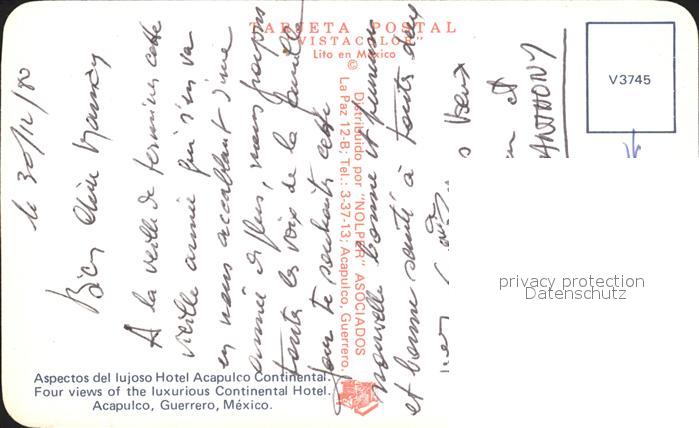 TARJETA POSTAL
"VISTACOLOR"
Lito en México
©
V3745
Distribuido por "NOLPER" ASOCIADOS
La Paz 12-B; Tel.: 3-37-13; Acapulco, Guerrero.
le 30/12/80
Bien chère
A la veille de terminer cette
vieille année qui s'en va
en nous accablant d'une
année de plus, nous
toutes les voix de la famille
pour te souhaiter cette
nouvelle bonne et
et bonne santé à toutes
vœux
et
ANTHONY
privacy protection
Datenschutz
Aspectos del lujoso Hotel Acapulco Continental.
Four views of the luxurious Continental Hotel.
Acapulco, Guerrero, México.